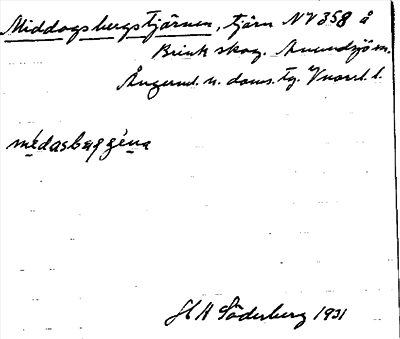 Middagsbergstjärnen, tjärn NV 358 å
Brink skog. Anundsjö sn.
Ångerml. n. doms. tg. Vnorrl. l.
médasbærgȩ́na
H H Söderberg 1931